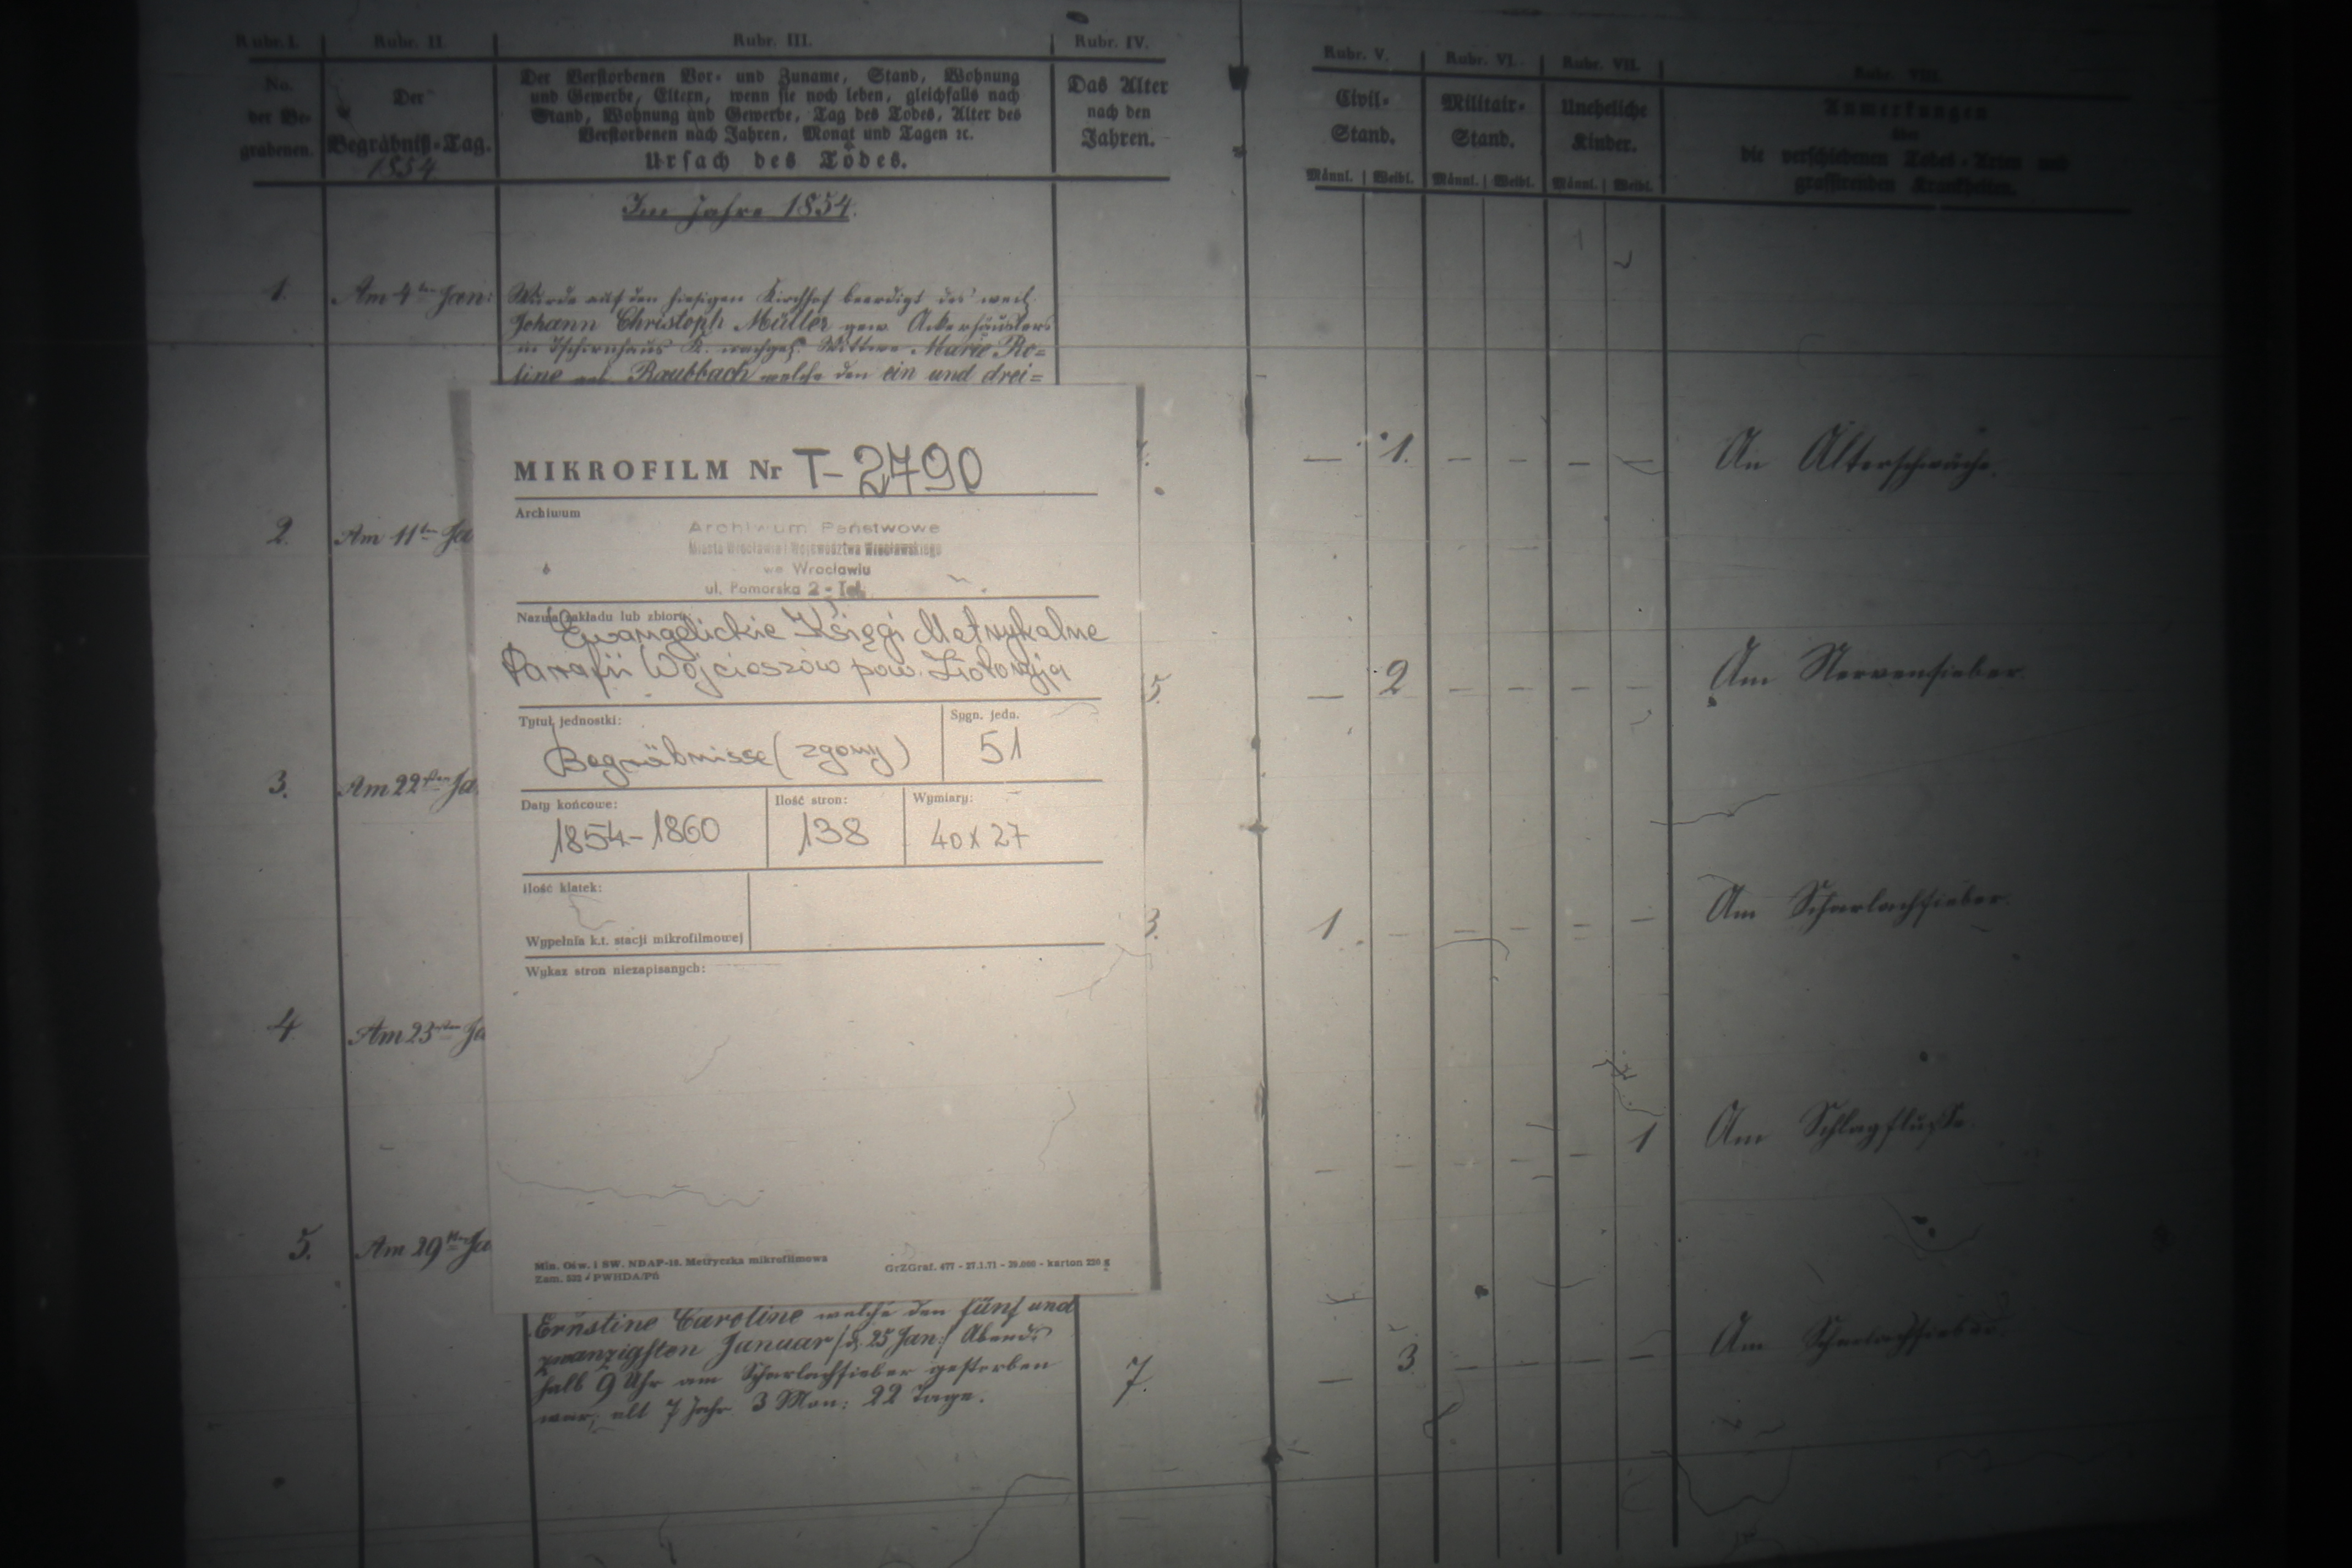 Rubr. I. Rubr. II. Rubr. III. Rubr. IV. Rubr. V. Rubr. VI. Rubr. VII. Rubr. VIII.
No.
der Be-
grabenen.
Der
Begräbniß-Tag.
1854
Der Verstorbenen Vor- und Zuname, Stand, Wohnung
und Gewerbe, Eltern, wenn sie noch leben, gleichfalls nach
Stand, Wohnung und Gewerbe, Tag des Todes, Alter des
Verstorbenen nach Jahren, Monat und Tagen ꝛc.
Ursach des Todes.
Das Alter
nach den
Jahren.
Civil-
Stand.
Männl. Weibl.
Militair-
Stand.
Männl. Weibl.
Uneheliche
Kinder.
Männl. Weibl.
Anmerkungen
über
die verschiedenen Todes-Arten und
grassirenden Krankheiten.
Im Jahre 1854.
1. Am 4ten Jan:
Wurde auf den hiesigen Kirchhof beerdigt des weil.
Johann Christoph Müller gew. Ackerhäuslers
in Tschirnhaus K. nachgel. Wittwe Marie Ro=
sine geb. Raubbach welche den ein und drei=
— 1. — — — — An Altersschwäche.
2. Am 11ten Ja
5. — 2 — — — — Am Nervenfieber.
3. Am 22sten Ja
3. 1 — — — — — Am Scharlachfieber.
4 Am 23sten Ja
— — — — — 1 Am Schlagflusse.
5. Am 29sten Ja
MIKROFILM Nr T-2790
Archiwum
Archiwum Państwowe
Miasta Wrocławia i Województwa Wrocławskiego
we Wrocławiu
ul. Pomorska 2 - Tel.
Nazwa zakładu lub zbioru
Ewangelickie Księgi Metrykalne
Parafii Wojcieszów pow. Złotoryja
Tytuł jednostki:
Begräbnisse (zgony)
Sygn. jedn.
51
Daty końcowe:
1854-1860
Ilość stron:
138
Wymiary:
40 x 27
Ilość klatek:
Wypełnia k.t. stacji mikrofilmowej
Wykaz stron niezapisanych:
Min. Ośw. i SW. NDAP-16. Metryczka mikrofilmowa
Zam. 532 PWHDA/Pń
GrZGraf. 677 - 27.1.71 - 20.000 - karton 220 g
Ernstine Caroline welche den fünf und
zwanzigsten Januar /d. 25 Jan:/ Abends
halb 9 Uhr am Scharlachfieber gestorben
war; alt 7 Jahr 3 Mon: 22 Tage.
7. — 3 — — — — Am Scharlachfieber.